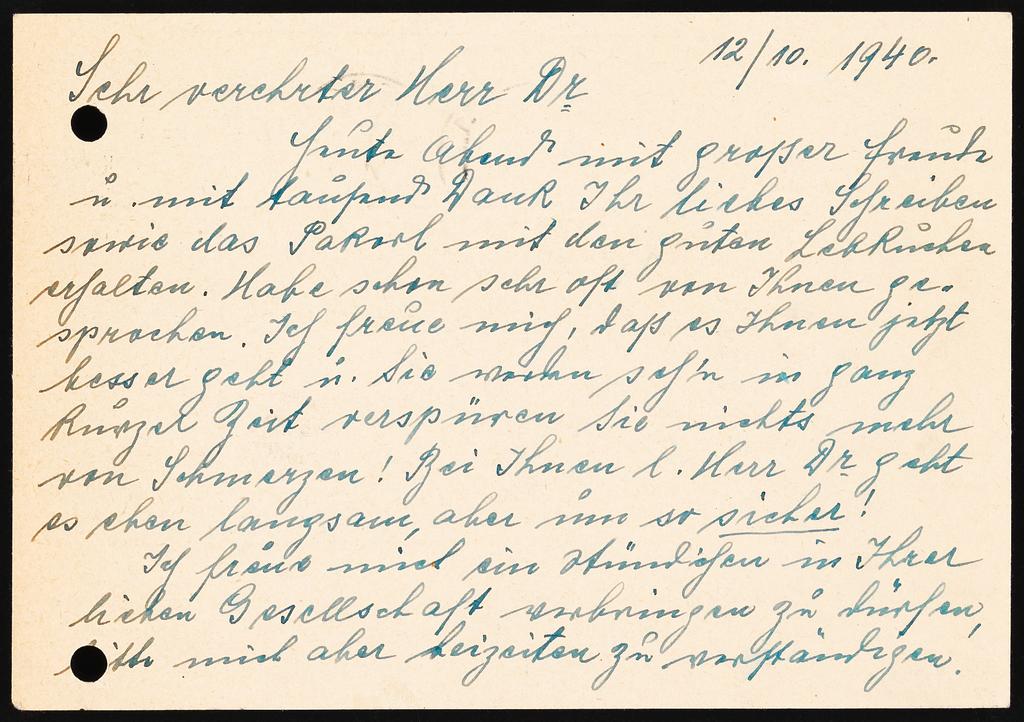 12/10. 1940.
Sehr verehrter Herr Dr
Heute Abend mit großer Freude
u. mit tausend Dank Ihr liebes Schreiben
sowie das Pakerl mit den guten Lebkuchen
erhalten. Habe schon sehr oft von Ihnen ge-
sprochen. Ich freue mich, daß es Ihnen jetzt
besser geht u. Sie werden seh'n in ganz
kurzer Zeit verspüren Sie nichts mehr
von Schmerzen! Bei Ihnen l. Herr Dr geht
es eben langsam, aber um so sicher!
Ich freue mich ein Stündchen in Ihrer
lieben Gesellschaft verbringen zu dürfen,
bitte mich aber beizeiten zu verständigen.